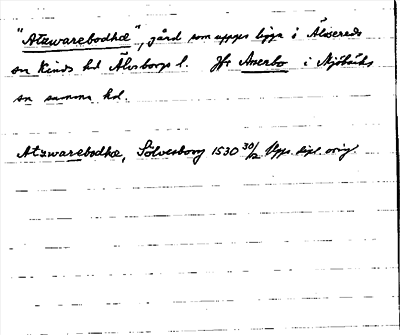 "Atzwarebodhæ", gård som uppges ligga i Älvsereds
sn Kinds hd Älvsborgs l. Jfr Aserbo i Mjöbäcks
sn samma hd.
Atzwarebodhæ, Sölvesborg 1530 30/12 Upps. dipl. orig.